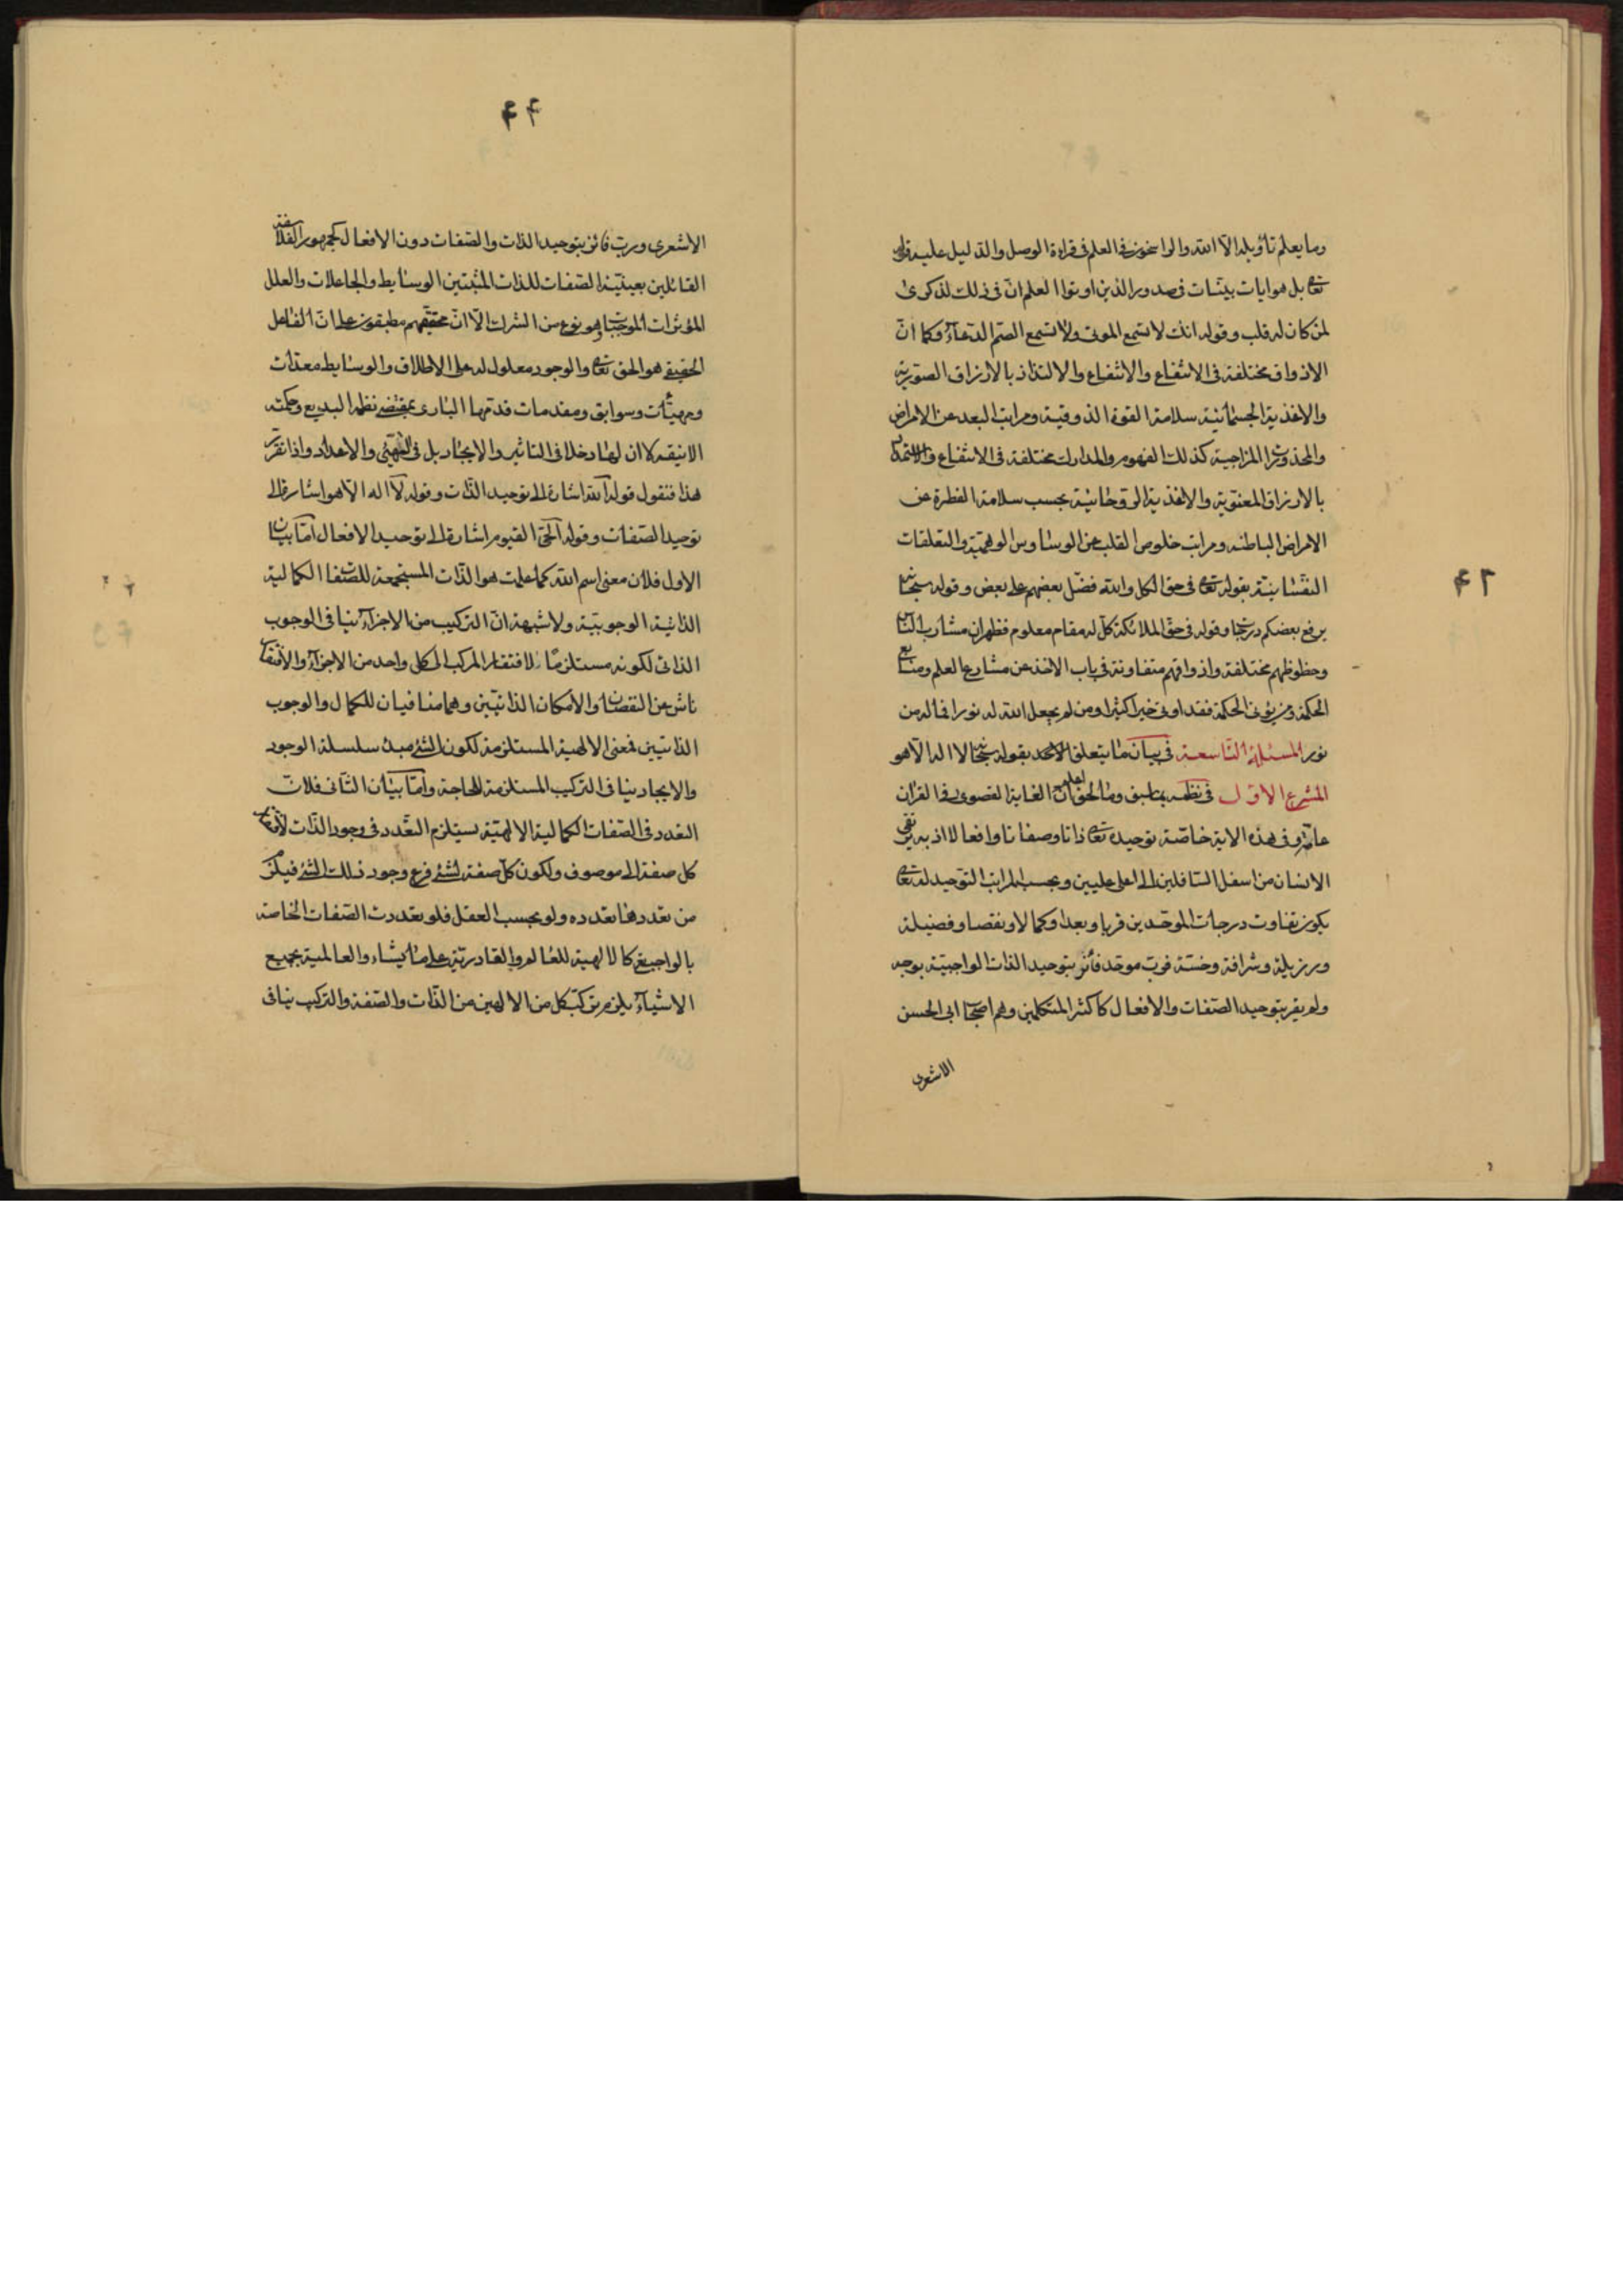 وما يعلم تأويله الا الله والراسخون فى العلم فى قراءة الوصل والدليل عليه قوله
تعا بل هو ايات بينات فى صدور الذين اوتوا العلم انّ فى ذلك لذكرى
لمن كان له قلب وقوله انك لا تسمع الموتى ولا تسمع الصم الدعاء وكما انّ
الاذواق مختلفة فى الانتفاع والالتذاذ بالارزاق الصوريّة
والاغذية الجسمانية سلامة القوة الذوقية ومراتب البعد عن الامراض
المزاجية كذلك الفهوم والمدارك مختلفة فى الانتفاع
بالارزاق المعنوية والاغذية الروحانية بحسب سلامة الفطرة عن
الامراض الباطنه ومراتب خلوص القلب عن الوساوس الوهمية والتعلقات
النفسانيّة بقوله تعا فى حق الكل والله فضّل بعضهم على بعض وقوله سبحا
يرفع بعضكم درجا وقوله فى حق الملائكة كلّ له مقام معلوم فظهر ان مشارب الناس
وحظوظهم مختلفة واذواقهم متفاوتة فى باب الاخذ عن مشارع العلم ومنابع
الحكمة ومن يؤتى الحكمة فقد اوتى خيرا كثيرا ومن لم يجعل الله له نورا فما له من
نور المسئلة التاسعة فى بيان ما يتعلق بقوله سبحا لا اله الا هو
المشرع الاول فى نظمه بما سبق وما لحق اعلم ان الغاية القصوى فى القران
عامّة وفى هذه الاية خاصّة توحيده تعا ذاتا وصفاتا وافعالا اذ به يرتقى
الانسان من اسفل السافلين الى اعلى عليين وبحسب مراتب التوحيد له تعا
يكون تفاوت درجات الموحّدين قربا وبعدا وكمالا ونقصا وفضيلة
ورزيلة وشرافة وخسّة فربّ موحّد فائز بتوحيد الذات الواجبيّة بوجه
ولم يقر بتوحيد الصّفات والافعال كاكثر المتكلمين وهم اصحا ابى الحسن
الاشعرى
۴۲
۴۴
الاشعرى وربّ فائز بتوحيد الذات والصّفات دون الافعال كجمهور الفلاسفة
القائلين بعينيّة الصّفات للذات المثبتين الوسايط والجاعلات والعلل
المؤثرات الموجبات وهو نوع من الشرك الا انّ محققيهم مطبقون على انّ الفاعل
الحقيقى هو الحق تعا والوجود معلول له على الاطلاق والوسايط معدّات
ومهيّئات وسوابق ومقدمات قدّمها البارى بمقتضى نظمه البديع وحكمته
الانيقه لا ان لها دخلا فى التاثير والايجاد بل فى التهيّئ والاعداد واذا تقرر
هذا فنقول قوله الله اشارة الى توحيد الذّات وقوله لا اله الا هو اشارة الى
توحيد الصّفات وقوله الحىّ القيوم اشارة الى توحيد الافعال امّا بيان
الاول فلان معنى اسم الله كما علمت هو الذّات المستجمعة للصّفات الكمالية
الذاتية الوجوبيّة ولا شبهة انّ التركيب من الاجزاء ينافى الوجوب
الذاتى لكونه مستلزما لافتقار المركب الى كل واحد من الاجزاء والافتقار
ناش من النقصان والامكان الذاتيّين وهما منافيان للكمال والوجوب
الذاتيين فمعنى الالهية المستلزمة لكون الشئ مبدء سلسلة الوجود
والايجاد ينافى التركيب المستلزمة للحاجة وامّا بيان الثّانى فلانّ
التعدد فى الصّفات الكمالية الالهيّة يستلزم التعّدد فى وجود الذّات لافتقار
كل صفة الى موصوف ولكون كلّ صفة لشئ فرع وجود ذلك الشئ فيلزم
من تعددها تعدده ولو بحسب العقل فلو تعددت الصّفات الخاصة
بالواجب كالالهية للعالم والقادريّة على ما يشاء والعالمية بجميع
الاشياء يلزم تركّب كل من الالهين من الذّات والصّفة والتركيب ينافى